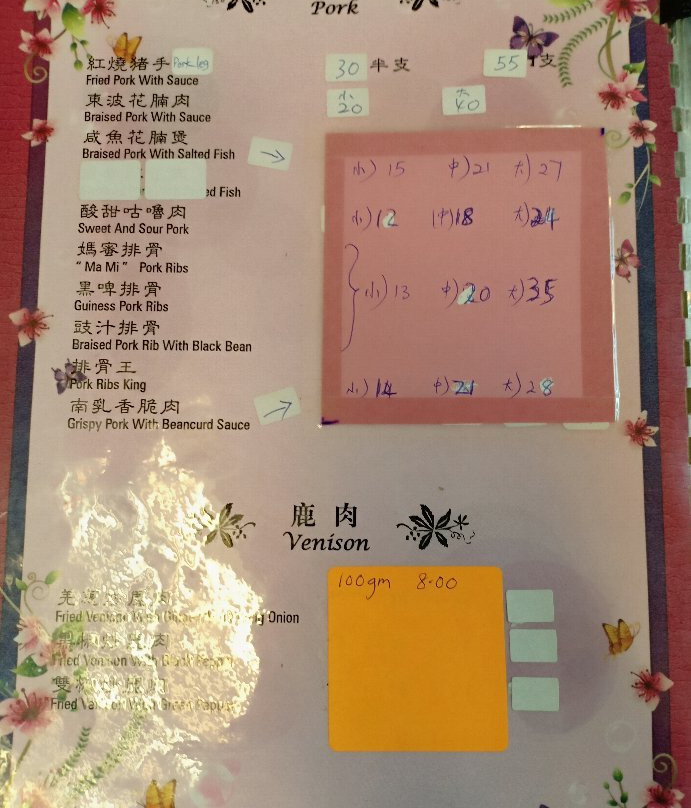 Pork
紅燒猪手 Pork leg 30 半支 55 1支
Fried Pork With Sauce
東波花腩肉 小 20 大 40
Braised Pork With Sauce
咸魚花腩煲 →
Braised Pork With Salted Fish
小) 15 中) 21 大) 27
ed Fish
酸甜咕嚕肉 小) 12 中) 18 大) 24
Sweet And Sour Pork
媽蜜排骨
“ Ma Mi ” Pork Ribs
黑啤排骨 小) 13 中) 20 大) 35
Guiness Pork Ribs
豉汁排骨
Braised Pork Rib With Black Bean
排骨王
Pork Ribs King
南乳香脆肉 → 小) 14 中) 21 大) 28
Grispy Pork With Beancurd Sauce
鹿肉
Venison
100gm 8.00
Fried Venison With Onion
Fried Venison With
Fried With Green